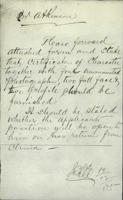 Mr Atkinson
Please forward
attached forms and state
that Certificate of Character
together with four unmounted
photographs, two full face &
two profile should be
furnished
It should be stated
whether the applicant's
position will be open to
him on his return from
China